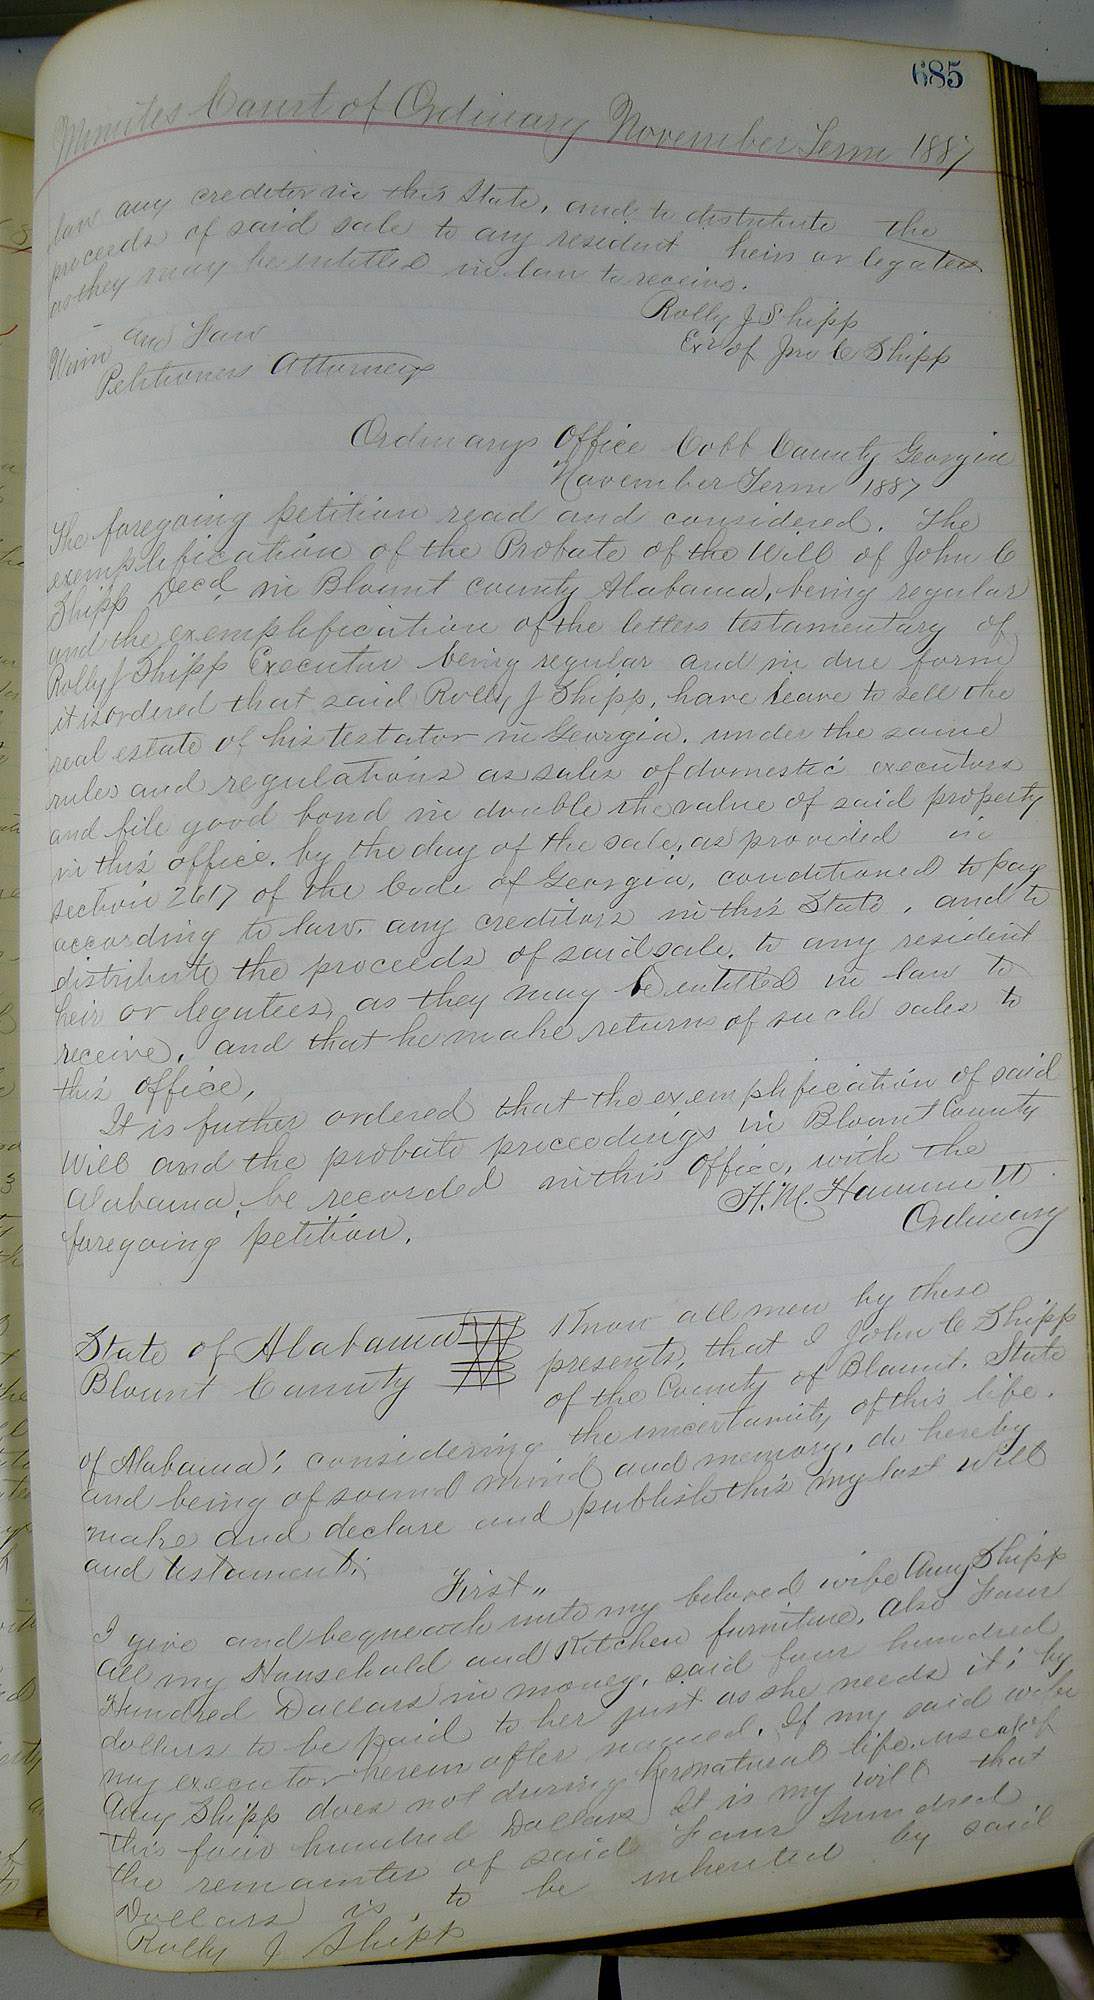 685
Minutes Court of Ordinary November Term 1887
law any creditor in this State, and to distribute the
proceeds of said sale to any resident heirs or legatees
as they may be entitled in law to receive.
Rolly J Shipp
Exr of Jno C Shipp
Winn and Law
Petitioners Attorneys
Ordinarys Office Cobb County Georgia
November Term 1887
The foregoing petition read and considered. The
exemplification of the Probate of the Will of John C
Shipp Decd, in Blount county Alabama, being regular
and the exemplification of the letters testamentary of
Rolly J Shipp Executor being regular and in due form
it is ordered that said Rolly J Shipp, have leave to sell the
real estate of his testator in Georgia. under the same
rules and regulations as sales of domestic executors
and file good bond in double the value of said property
in this office. by the day of the sale, as provided in
section 2617 of the Code of Georgia, conditioned to pay
according to law, any creditors in this State, and to
distribute the proceeds of said sale, to any resident
heir or legatees, as they may be entitled in law to
receive, and that he make returns of such sales to
this office,
It is futher ordered that the exemplification of said
Will and the probate proceedings in Blount County
Alabama, be recorded in this office, with the
foregoing petition.
H. M. Hammett
Ordinary
State of Alabama
Blount County
Know all men by these
presents, that I John C Shipp
of the County of Blount. State
of Alabama, considering the uncertainity of this life.
and being of sound mind and memory, do hereby
make and declare and publish this my last Will
and testament;
First"
I give and bequeath unto my beloved wife Amy Shipp
all my Household and Kitchen furniture. also Four
Hundred Dollars in money, said four hundred
dollars to be paid to her just as she needs it; by
my executor herein after named. If my said wife
Amy Shipp does not during her natural life. use all of
this four hundred Dollars It is my will that
the remainter of said Four hundred
Dollars is to be inherited by said
Rolly J Shipp